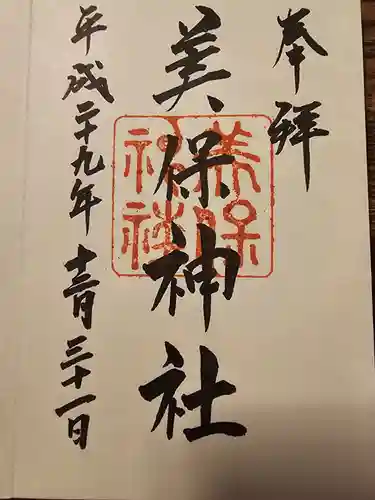 奉拝
美保神社
美保
神社
平成二十九年 十二月 三十一日